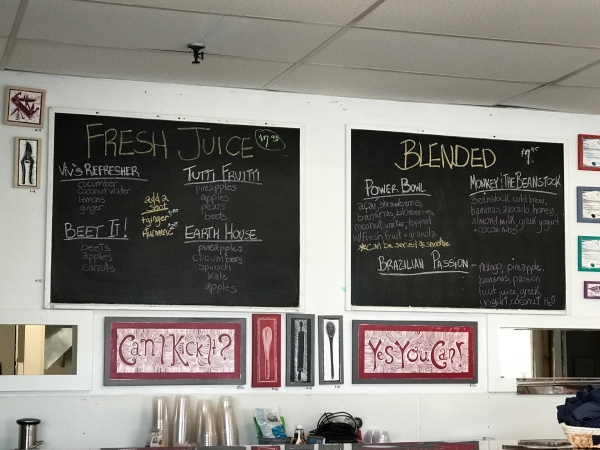 FRESH JUICE $7.95
VIV'S REFRESHER
cucumber
coconut water
lemons
ginger
BEET IT!
beets
apples
carrots
add a
shot
ginger
turmeric
TUTTI FRUITTI
pineapples
apples
pears
beets
EARTH HOUSE
pineapples
cucumbers
spinach
kale
apples
BLENDED $7.95
POWER BOWL
açai, strawberries,
bananas, blueberries,
coconut water, topped
w/fresh fruit + granola
*can be served as smoothie
MONKEY & THE BEANSTOCK
Beanstock cold brew,
bananas, avocado, honey,
almond milk, greek yogurt
+ cocoa nibs
BRAZILIAN PASSION - mango, pineapple,
bananas, passion
fruit juice, greek
yogurt, coconut H2O
Can I Kick It?
Yes You Can!